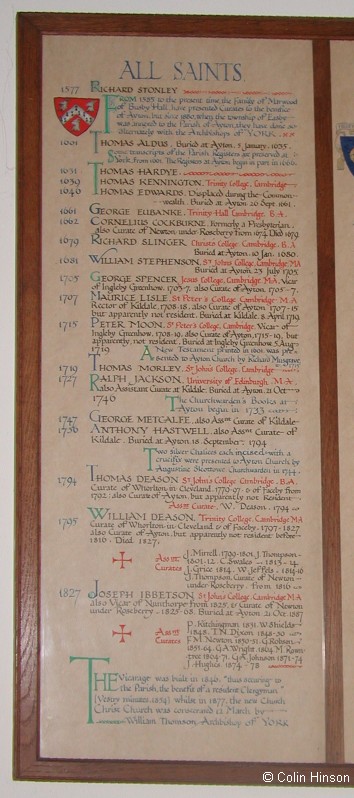 ALL SAINTS
1577 RICHARD STONLEY
FROM 1587 to the present time the family of Marwood
of Busby Hall, have presented Curates to the benefice
of Ayton, but since 1880, when the township of Easby
was annexed to the Parish of Ayton, they have done so
alternately with the Archbishops of YORK.
1601 THOMAS ALDUS. Buried at Ayton. 5. January. 1635.
Some transcripts of the Parish Registers are preserved at
from 1601. The Registers at Ayton begin in part in 1666.
1631 THOMAS HARDYE.
1639 THOMAS KENNINGTON. Trinity College. Cambridge
1646 THOMAS EDWARDS. Displaced during the Common-
wealth. Buried at Ayton. 20. Sept. 1661.
1661 GEORGE EUBANKE. Trinity Hall. Cambridge. B.A.
1662 CORNELIUS COCKBURNE. Formerly a Presbyterian.
also Curate of Newton under Roseberry from 1674. Died 1679.
1679 RICHARD SLINGER. Christs College. Cambridge. B.A.
Buried at Ayton. 10. Jan. 1680.
1681 WILLIAM STEPHENSON. St Johns College. Cambridge. MA
Buried at Ayton. 23 July 1705.
1705 GEORGE SPENCER. Jesus College. Cambridge. M.A. Vicar
of Ingleby Greenhow. 1703-7. also Curate of Ayton. 1705-7.
1707 MAURICE LISLE. St Peter's College. Cambridge. M.A.
Rector of Kildale. 1708-18. also Curate of Ayton. 1707-15
but apparently not resident. Buried at Kildale. 8. April 1719.
1715 PETER MOON. St Peter's College. Cambridge. Vicar of
Ingleby Greenhow. 1708-19. also Curate of Ayton. 1715-19. but
apparently, not resident. Buried at Ingleby Greenhow. 5. Aug.
1719
A New Testament printed in 1601 was pre-
sented to Ayton Church by Richard Musgrave
1719 THOMAS MORLEY. St Johns College. Cambridge
1727 RALPH JACKSON. University of Edinburgh. M.A.
also Assistant Curate at Kildale. Buried at Ayton. 21. Oct
1746
The Churchwarden's Books at
Ayton begin in 1733
1747 GEORGE METCALFE. also Asst Curate of Kildale
1756 ANTHONY HASTWELL. also Asst Curate of
Kildale. Buried at Ayton. 18. September. 1794
Two Silver Chalices each incised with a
crucifix were presented to Ayton Church by
Augustine Churchwarden in 1744.
1794 THOMAS DEASON. St Johns College. Cambridge. B.A.
Curate of Whorlton in Cleveland. 1770-97. & of Faceby from
1792. also Curate of Ayton. but apparently not Resident
Asst Curate. W. Deason. 1794
1795 WILLIAM DEASON. Trinity College. Cambridge. MA
Curate of Whorlton in Cleveland & of Faceby. 1797-1827
also Curate of Ayton. but apparently not resident before
1816. Died. 1827.
Asst Curates
J. Mirrell. 1799-1801. J. Thompson.
1801-12. C. Swales 1813-14.
J. Grice 1814. W. Jeffels. 1814-16
J. Thompson. Curate of Newton
under Roseberry. From 1816
1827 JOSEPH IBBETSON. St Johns College. Cambridge. M.A.
also Vicar of Nunthorpe from 1825. & Curate of Newton
under Roseberry. 1825-68. Buried at Ayton. 21. Oct. 1887
Asst Curates
P. Kitchingman. 1831. W. Shields
1848. T.N. Dixon. 1848-50
F.M. Newton. 1850-51. G. Robson
1851-64. G.A. Wright. 1864. M. Rown-
tree 1864-71. G.A. Johnson. 1871-74
J. Hughes. 1874-78
THE Vicarage was built in 1846, "thus securing to
the Parish, the benefit of a resident Clergyman."
[Vestry minutes. 1854] whilst in 1877, the new Church
Christ Church was consecrated 12 March by
William Thomson, Archbishop of YORK
© Colin Hinson